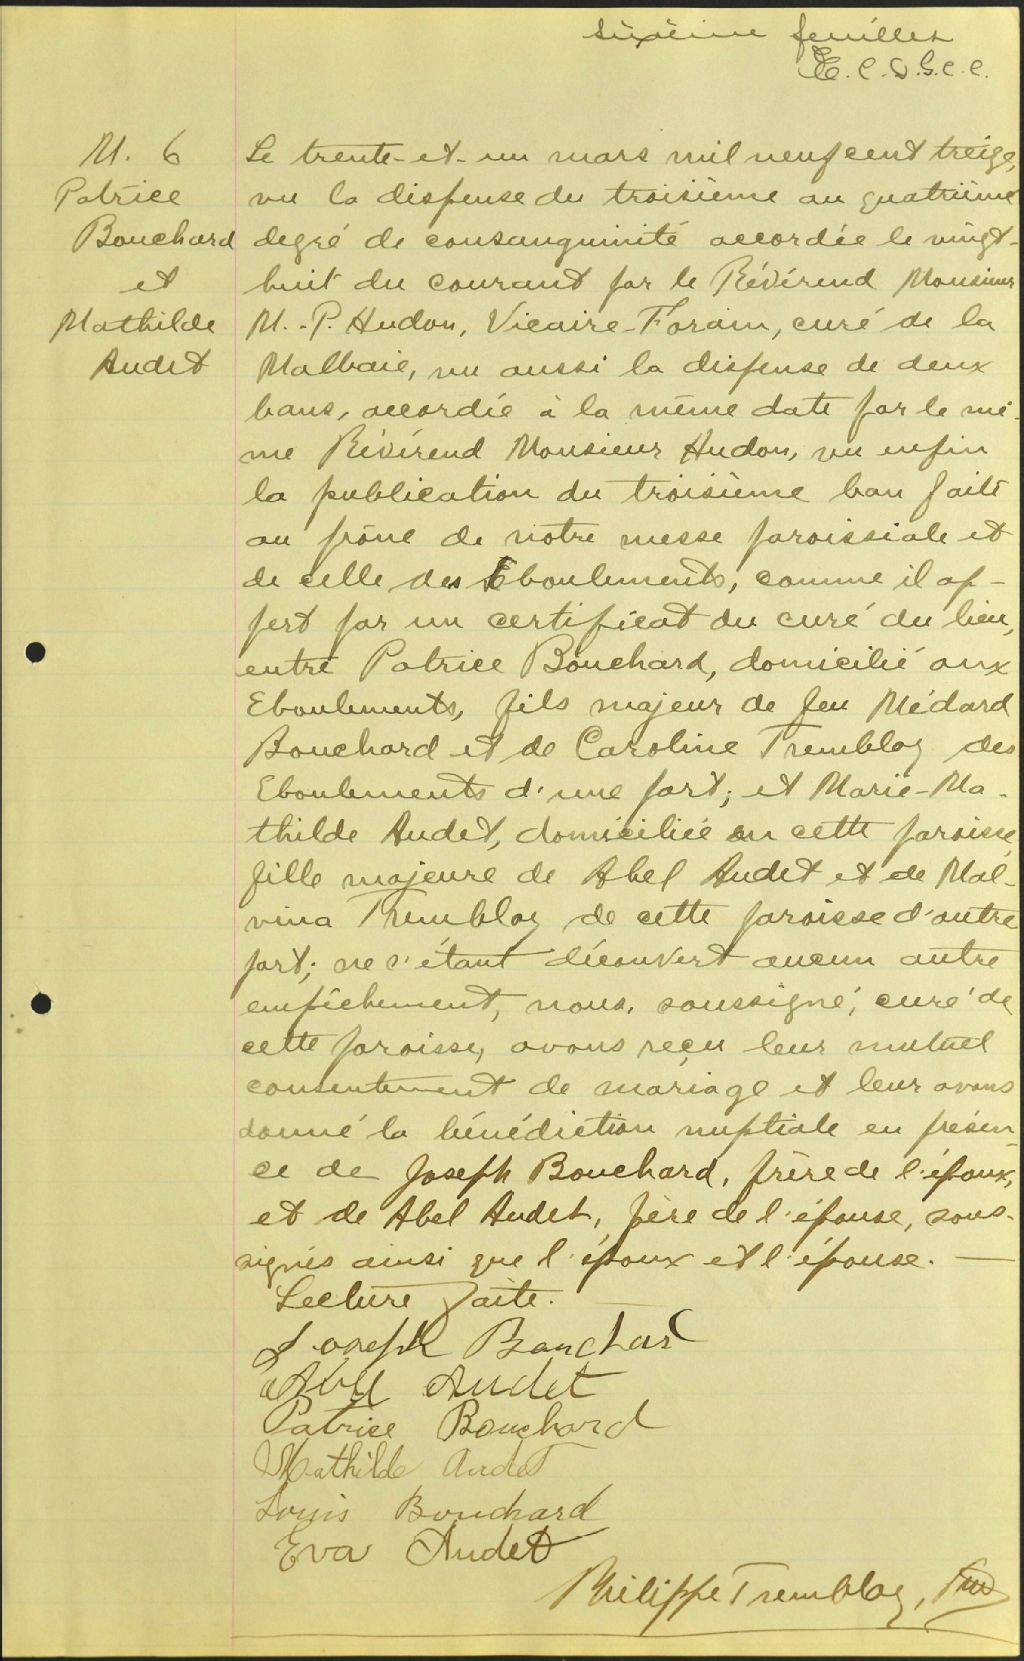 sixième feuillet
E. C. D. G. C. C.
M. 6
Patrice
Bouchard
et
Mathilde
Audet
Le trente-et-un mars mil neuf cent treize,
vu la dispense du troisième au quatrième
degré de consanguinité accordée le vingt-
huit du courant par le Révérend Monsieur
M.-P. Hudon, Vicaire-Forain, curé de la
Malbaie, vu aussi la dispense de deux
bans, accordée à la même date par le mê-
me Révérend Monsieur Hudon, vu enfin
la publication du troisième ban faite
au prône de notre messe paroissiale et
de celle des Eboulements, comme il ap-
pert par un certificat du curé du lieu,
entre Patrice Bouchard, domicilié aux
Eboulements, fils majeur de feu Médard
Bouchard et de Caroline Tremblay des
Eboulements d'une part; et Marie-Ma-
thilde Audet, domiciliée en cette paroisse,
fille majeure de Abel Audet et de Mal-
vina Tremblay de cette paroisse d'autre
part; ne s'étant découvert aucun autre
empêchement, nous, soussigné, curé de
cette paroisse, avons reçu leur mutuel
consentement de mariage et leur avons
donné la bénédiction nuptiale en présen-
ce de Joseph Bouchard, frère de l'époux,
et de Abel Audet, père de l'épouse, sous-
signés ainsi que l'époux et l'épouse. —
Lecture faite. —
Joseph Bouchard
Abel Audet
Patrice Bouchard
Mathilde Audet
Louis Bouchard
Eva Audet
Philippe Tremblay, Ptre